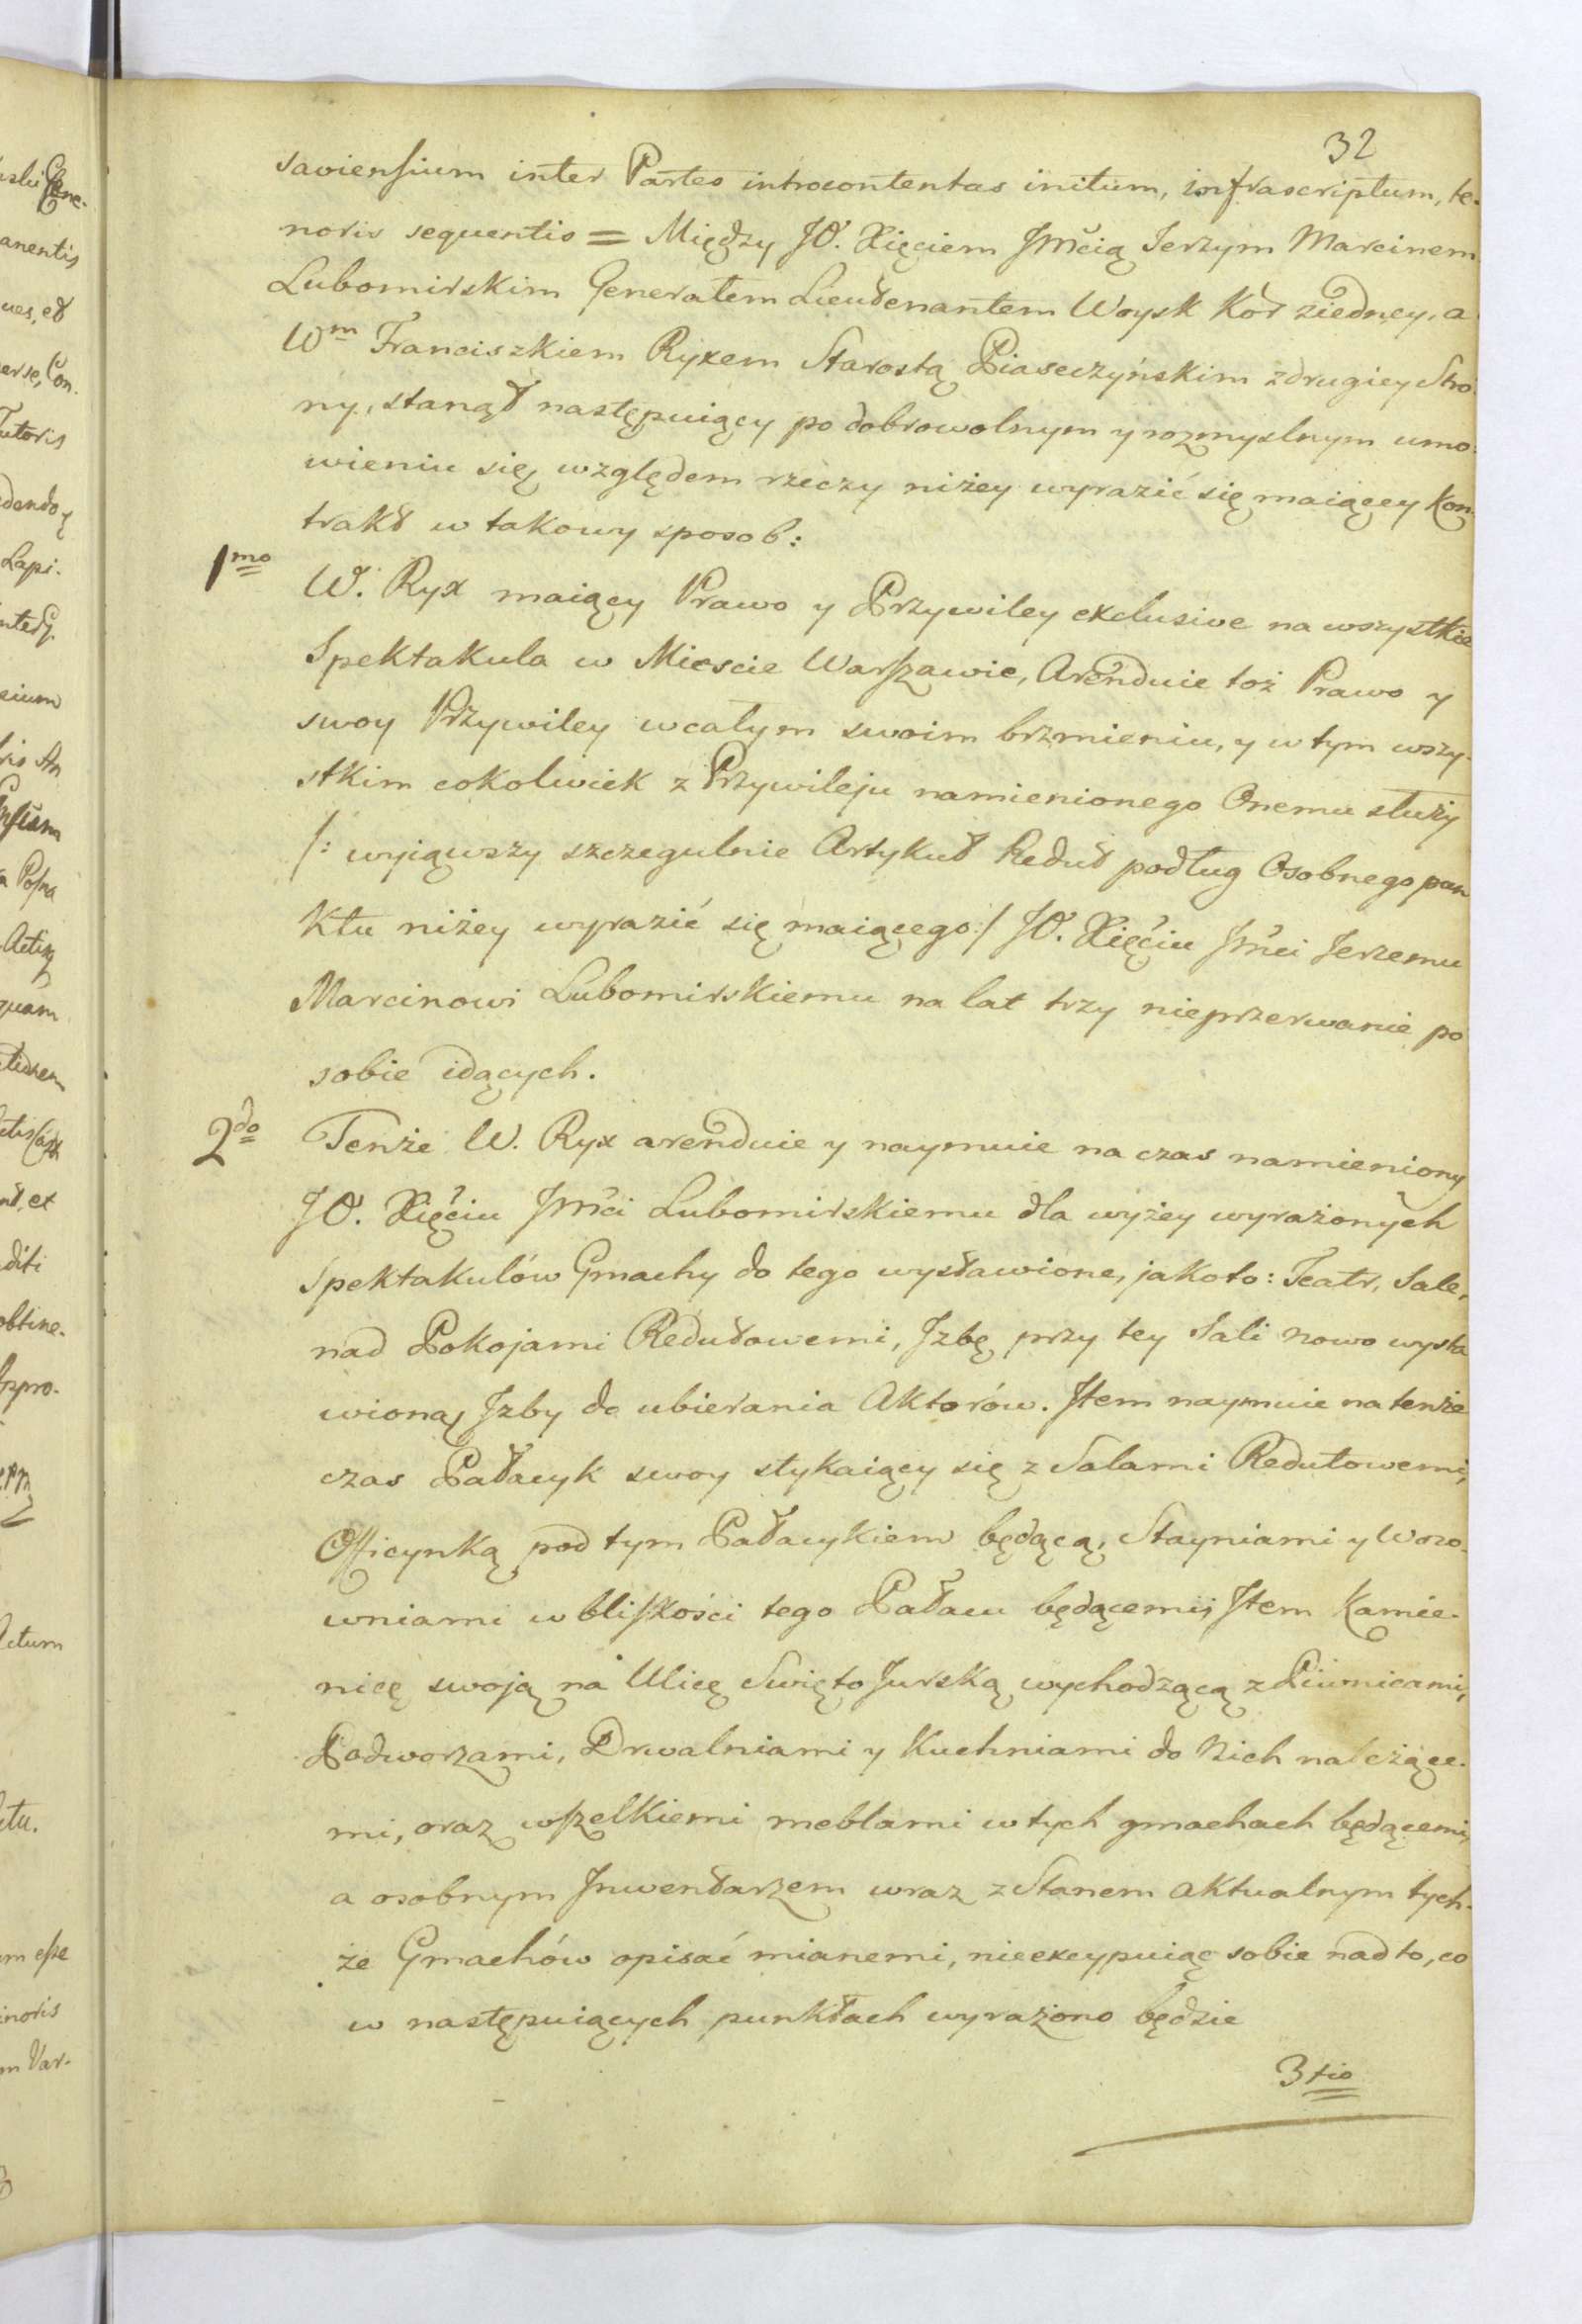 32
saviensium inter Partes introcontentas initum, infrascriptum, te-
noris sequentis = Między JO. Xięciem Jmcią Jerzym Marcinem
Lubomirskim Generałem Lieutenantem Woysk Kor ziedney, a
Wm Franciszkiem Ryxem Starostą Piaseczyńskim zdrugiey Stro-
ny, stanął następuiący po dobrowolnym y rozmyslnym umo-
wieniu się względem rzeczy niżey wyrazić się maiącey Kon-
trakt w takowy sposob:
1mo W. Ryx maiący Prawo y Przywiley exclusive na wszystkie
Spektakula w Miescie Warszawie, Arenduie toż Prawo y
swoy Przywiley wcałym swoim brzmieniu, y w tym wszy-
stkim cokolwiek z Przywileju namienionego Onemu służy
/: wyiąwszy szczegulnie Artykuł Redut podług Osobnego pun
Ktu niżey wyrazić się maiącego:/ JO. Xięciu Jmci Jerzemu
Marcinowi Lubomirskiemu na lat trzy nieprzerwanie po
sobie idących.
2do Tenże W. Ryx arenduie y naymuie na czas namieniony
JO. Xięciu Jmci Lubomirskiemu dla wyżey wyrażonych
Spektakulów Gmachy do tego wystawione, jakoto: Teatr, Sale,
nad Pokojami Redutowemi, Jzbę przy tey Sali nowo wysta
wioną, Jzby do ubierania Aktorów. Jtem naymuie na tenże
czas Pałacyk swoy stykaiący się z Salami Redutowemi,
Officynką pod tym Pałacykiem będącą, Stayniami y Wozo-
wniami w bliskości tego Pałacu będącemi, Jtem Kamie-
nicę swoją na Ulicę Swięto Jurską wychodzącą z Piwnicami,
Podworzami, Drwalniami y Kuchniami do Nich należące-
mi, oraz wszelkiemi meblami w tych gmachach będącemi,
a osobnym Jnwentarzem wraz z Stanem aktualnym tych-
że Gmachów opisać mianemi, nieexcypuiąc sobie nad to, co
w następuiących punktach wyrażono będzie
3tio